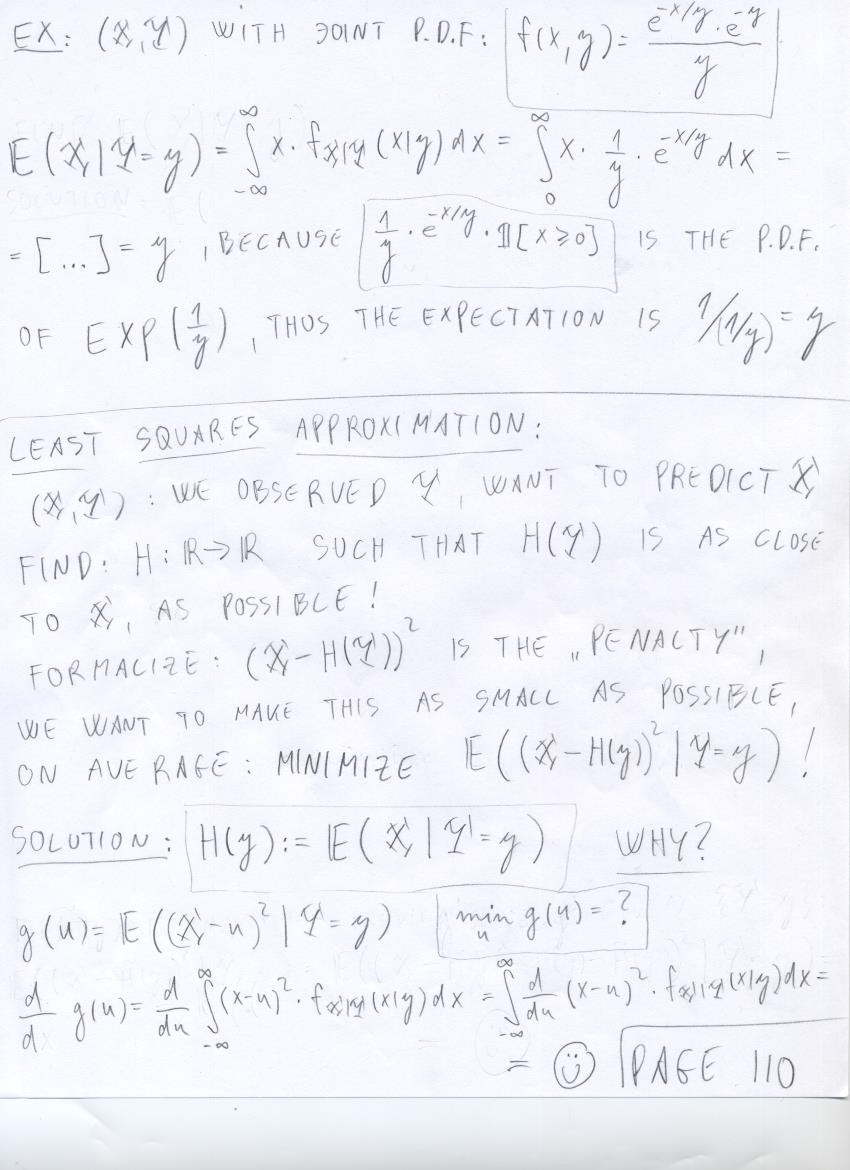 EX: (X,Y) WITH JOINT P.D.F: f(x,y) = e^{-x/y}·e^{-y} / y
E(X|Y=y) = ∫_{-∞}^{∞} x·f_{X|Y}(x|y)dx = ∫_0^∞ x·1/y·e^{-x/y}dx =
= [...] = y, BECAUSE 1/y·e^{-x/y}·𝟙[x≥0] IS THE P.D.F.
OF EXP(1/y), THUS THE EXPECTATION IS 1/(1/y) = y
LEAST SQUARES APPROXIMATION:
(X,Y): WE OBSERVED Y, WANT TO PREDICT X,
FIND: H: ℝ→ℝ SUCH THAT H(Y) IS AS CLOSE
TO X, AS POSSIBLE!
FORMALIZE: (X-H(Y))² IS THE „PENALTY",
WE WANT TO MAKE THIS AS SMALL AS POSSIBLE,
ON AVERAGE: MINIMIZE E((X-H(y))²|Y=y)!
SOLUTION: H(y):= E(X|Y=y) WHY?
g(u) = E((X-u)²|Y=y) min_u g(u) = ?
d/dx g(u) = d/du ∫_{-∞}^{∞} (x-u)²·f_{X|Y}(x|y)dx = ∫_{-∞}^{∞} d/du (x-u)²·f_{X|Y}(x|y)dx =
= ☺ PAGE 110